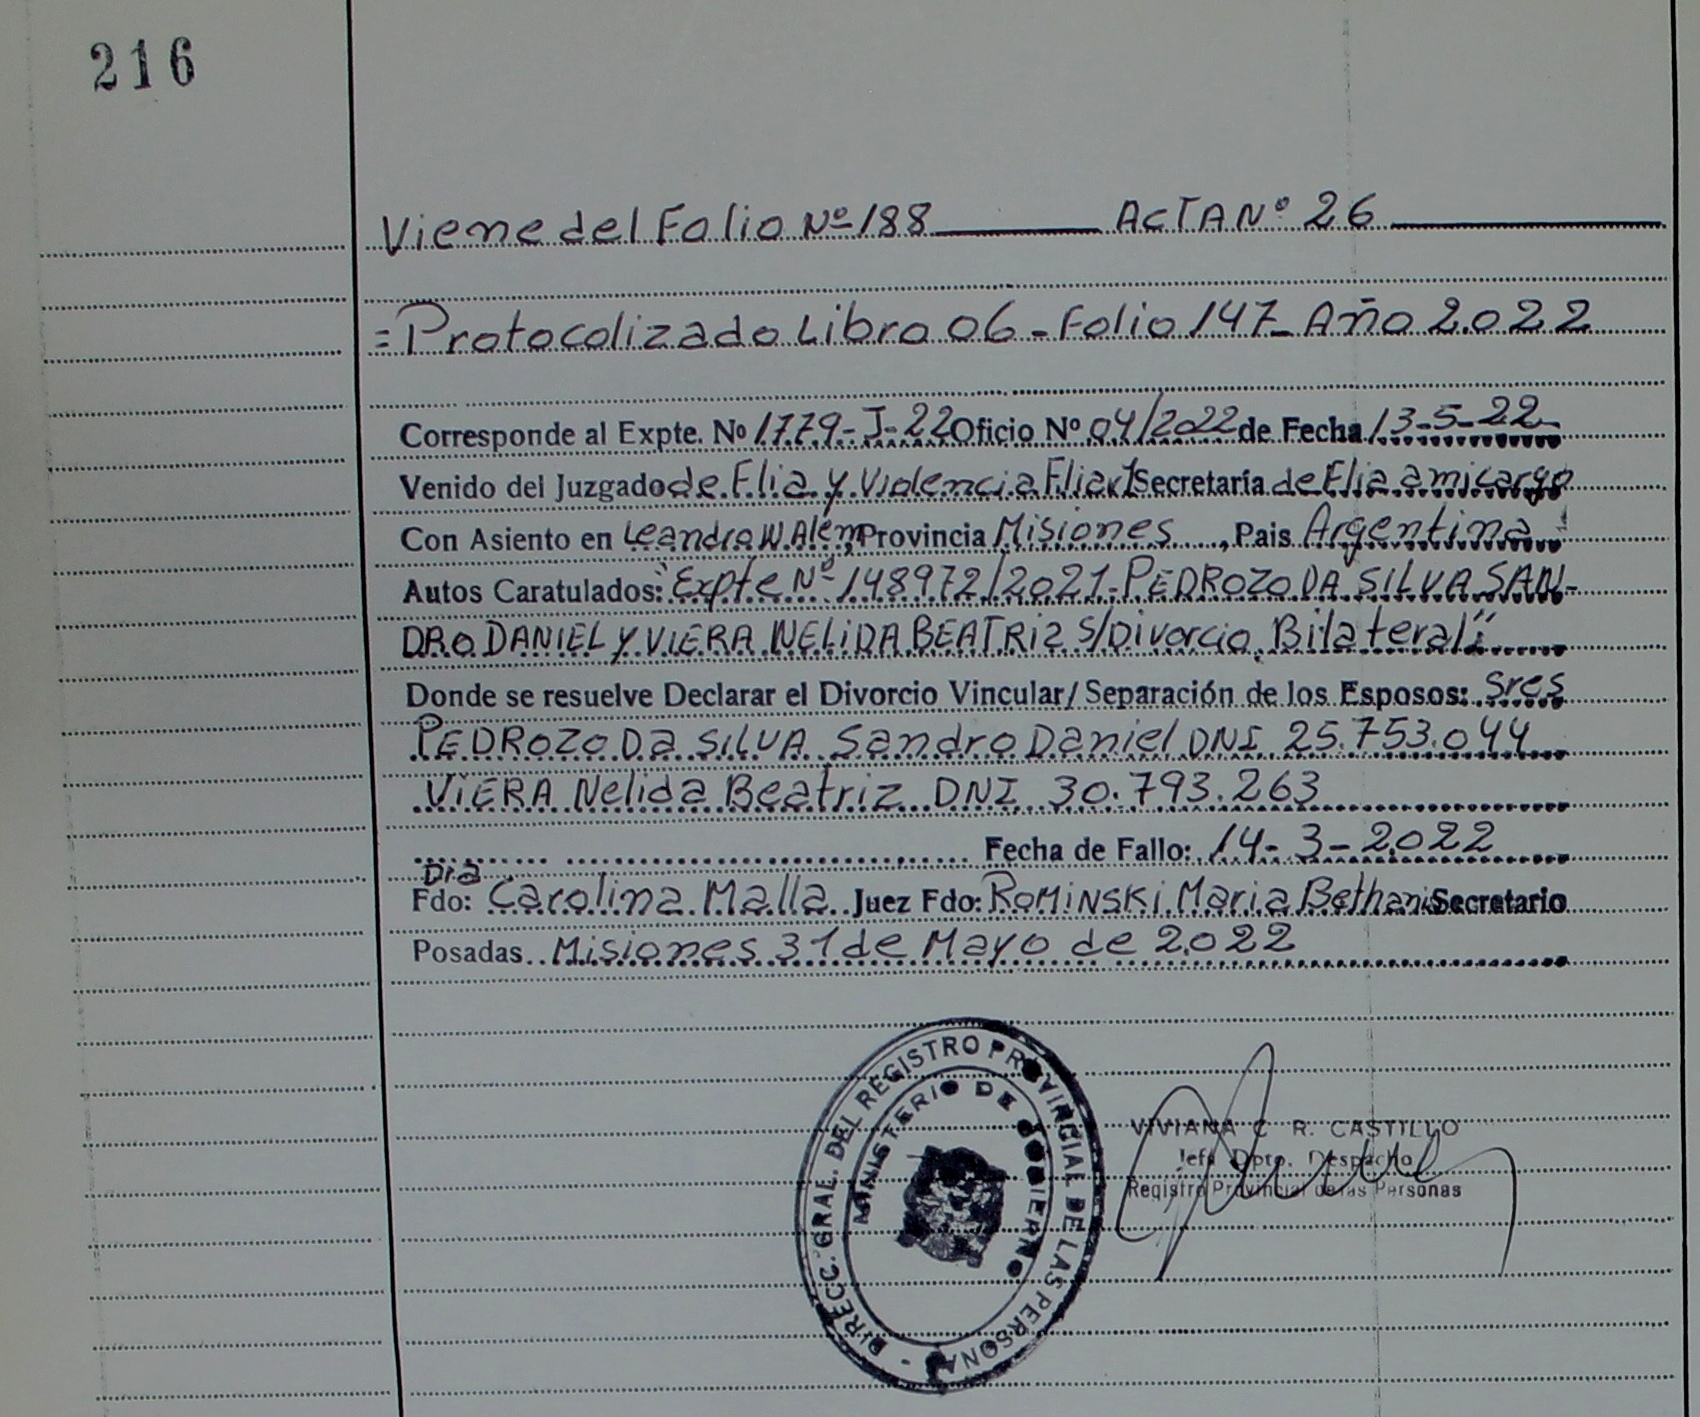 216
Viene del Folio Nº 188 ACTA Nº 26
= Protocolizado Libro 06 - Folio 147 - Año 2022
Corresponde al Expte. Nº 1779-J-22 Oficio Nº 04/2022 de Fecha 13-5-22
Venido del Juzgado de Flia y Violencia Fliar 1 Secretaría de Flia a mi cargo
Con Asiento en Leandro N. Alem, Provincia Misiones, Pais Argentina
Autos Caratulados: "Expte Nº 148972/2021- PEDROZO DA SILVA SAN-
DRO DANIEL y VIERA NELIDA BEATRIZ S/Divorcio Bilateral"
Donde se resuelve Declarar el Divorcio Vincular/Separación de los Esposos: Sres
PEDROZO Da SILVA Sandro Daniel DNI 25.753.044
VIERA Nelida Beatriz DNI 30.793.263
Fecha de Fallo: 14-3-2022
Dra
Fdo: Carolina Malla Juez Fdo: ROMINSKI Maria Bethani Secretario
Posadas Misiones 31 de Mayo de 2022
DIRECC. GRAL. DEL REGISTRO PROVINCIAL DE LAS PERSONAS
MINISTERIO DE GOBIERNO
VIVIANA C. R. CASTILLO
Jefa Dpto. Despacho
Registro Provincial de las Personas